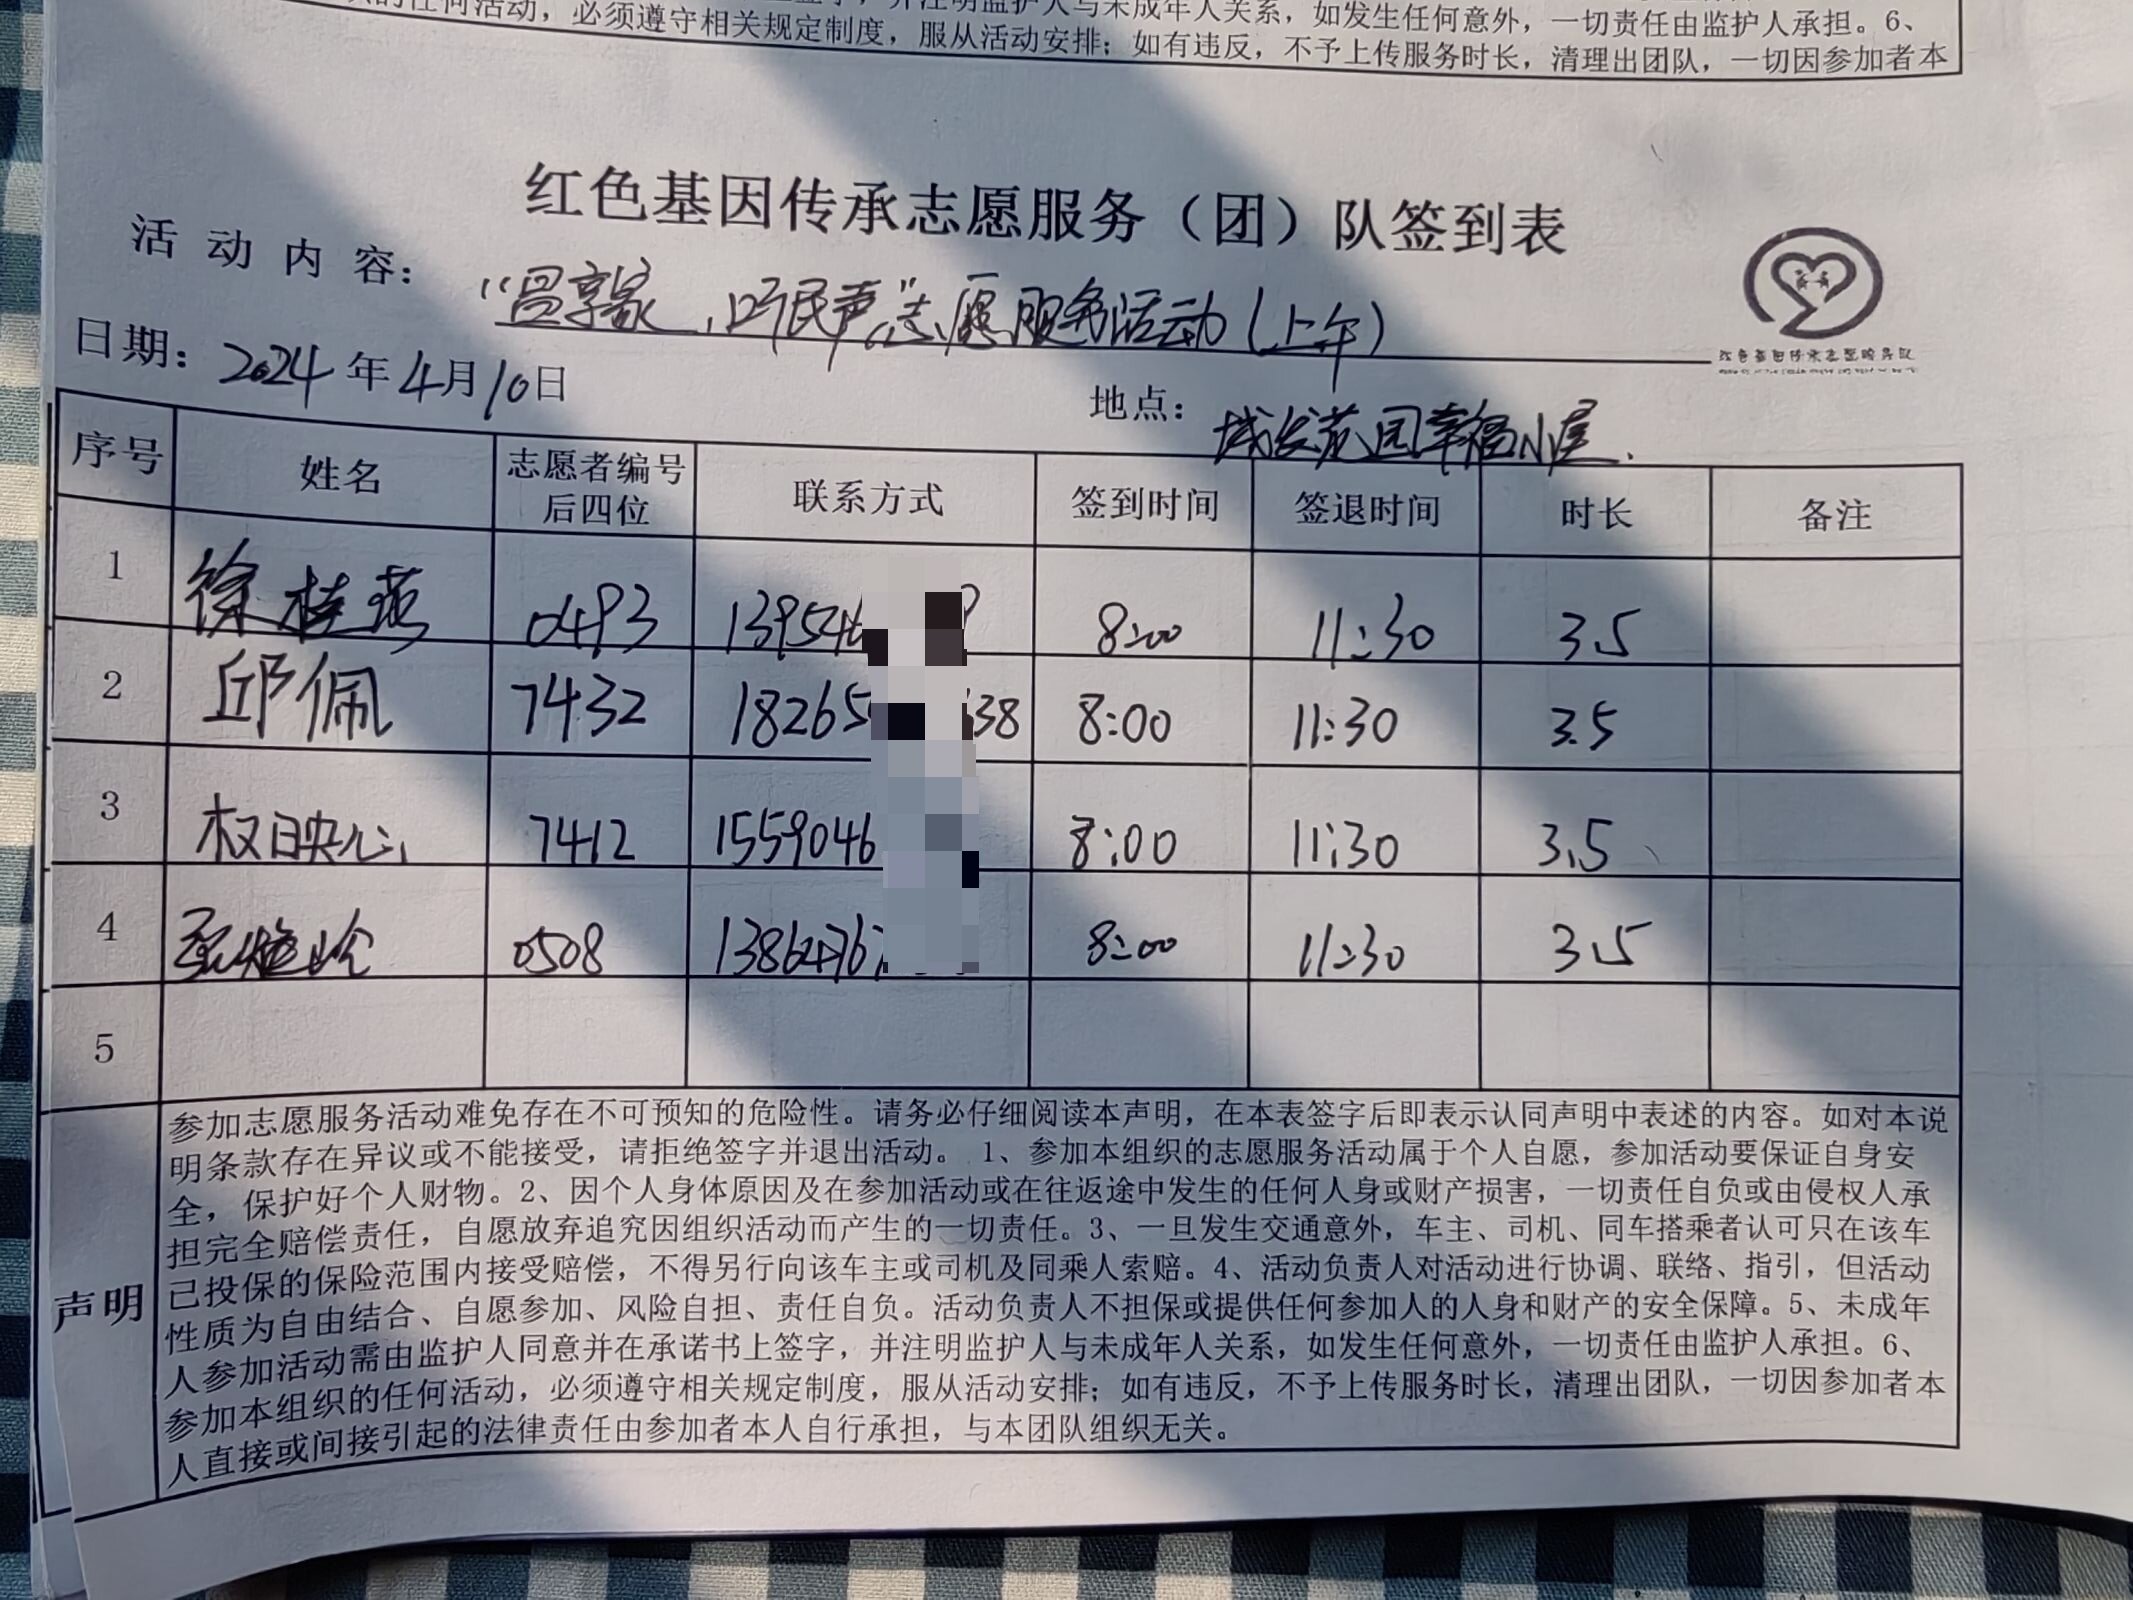 人参加活动需由监护人同意并在承诺书上签字，并注明监护人与未成年人关系，如发生任何意外，一切责任由监护人承担。6、
的任何活动，必须遵守相关规定制度，服从活动安排；如有违反，不予上传服务时长，清理出团队，一切因参加者本
红色基因传承志愿服务（团）队签到表
活动内容：“ 享家，听民声”志愿服务活动（上午）
日期：2024年4月10日 地点：城发花园幸福小屋.
序号 姓名 志愿者编号后四位 联系方式 签到时间 签退时间 时长 备注
1 徐桂 0493 139546 8:00 11:30 3.5
2 邱佩 7432 18265 38 8:00 11:30 3.5
3 权映心 7412 1559046 8:00 11:30 3.5
4 0508 8:00 11:30 3.5
5
声明
参加志愿服务活动难免存在不可预知的危险性。请务必仔细阅读本声明，在本表签字后即表示认同声明中表述的内容。如对本说
明条款存在异议或不能接受，请拒绝签字并退出活动。 1、参加本组织的志愿服务活动属于个人自愿，参加活动要保证自身安
全，保护好个人财物。2、因个人身体原因及在参加活动或在往返途中发生的任何人身或财产损害，一切责任自负或由侵权人承
担完全赔偿责任，自愿放弃追究因组织活动而产生的一切责任。3、一旦发生交通意外，车主、司机、同车搭乘者认可只在该车
已投保的保险范围内接受赔偿，不得另行向该车主或司机及同乘人索赔。4、活动负责人对活动进行协调、联络、指引，但活动
性质为自由结合、自愿参加、风险自担、责任自负。活动负责人不担保或提供任何参加人的人身和财产的安全保障。5、未成年
人参加活动需由监护人同意并在承诺书上签字，并注明监护人与未成年人关系，如发生任何意外，一切责任由监护人承担。6、
参加本组织的任何活动，必须遵守相关规定制度，服从活动安排；如有违反，不予上传服务时长，清理出团队，一切因参加者本
人直接或间接引起的法律责任由参加者本人自行承担，与本团队组织无关。